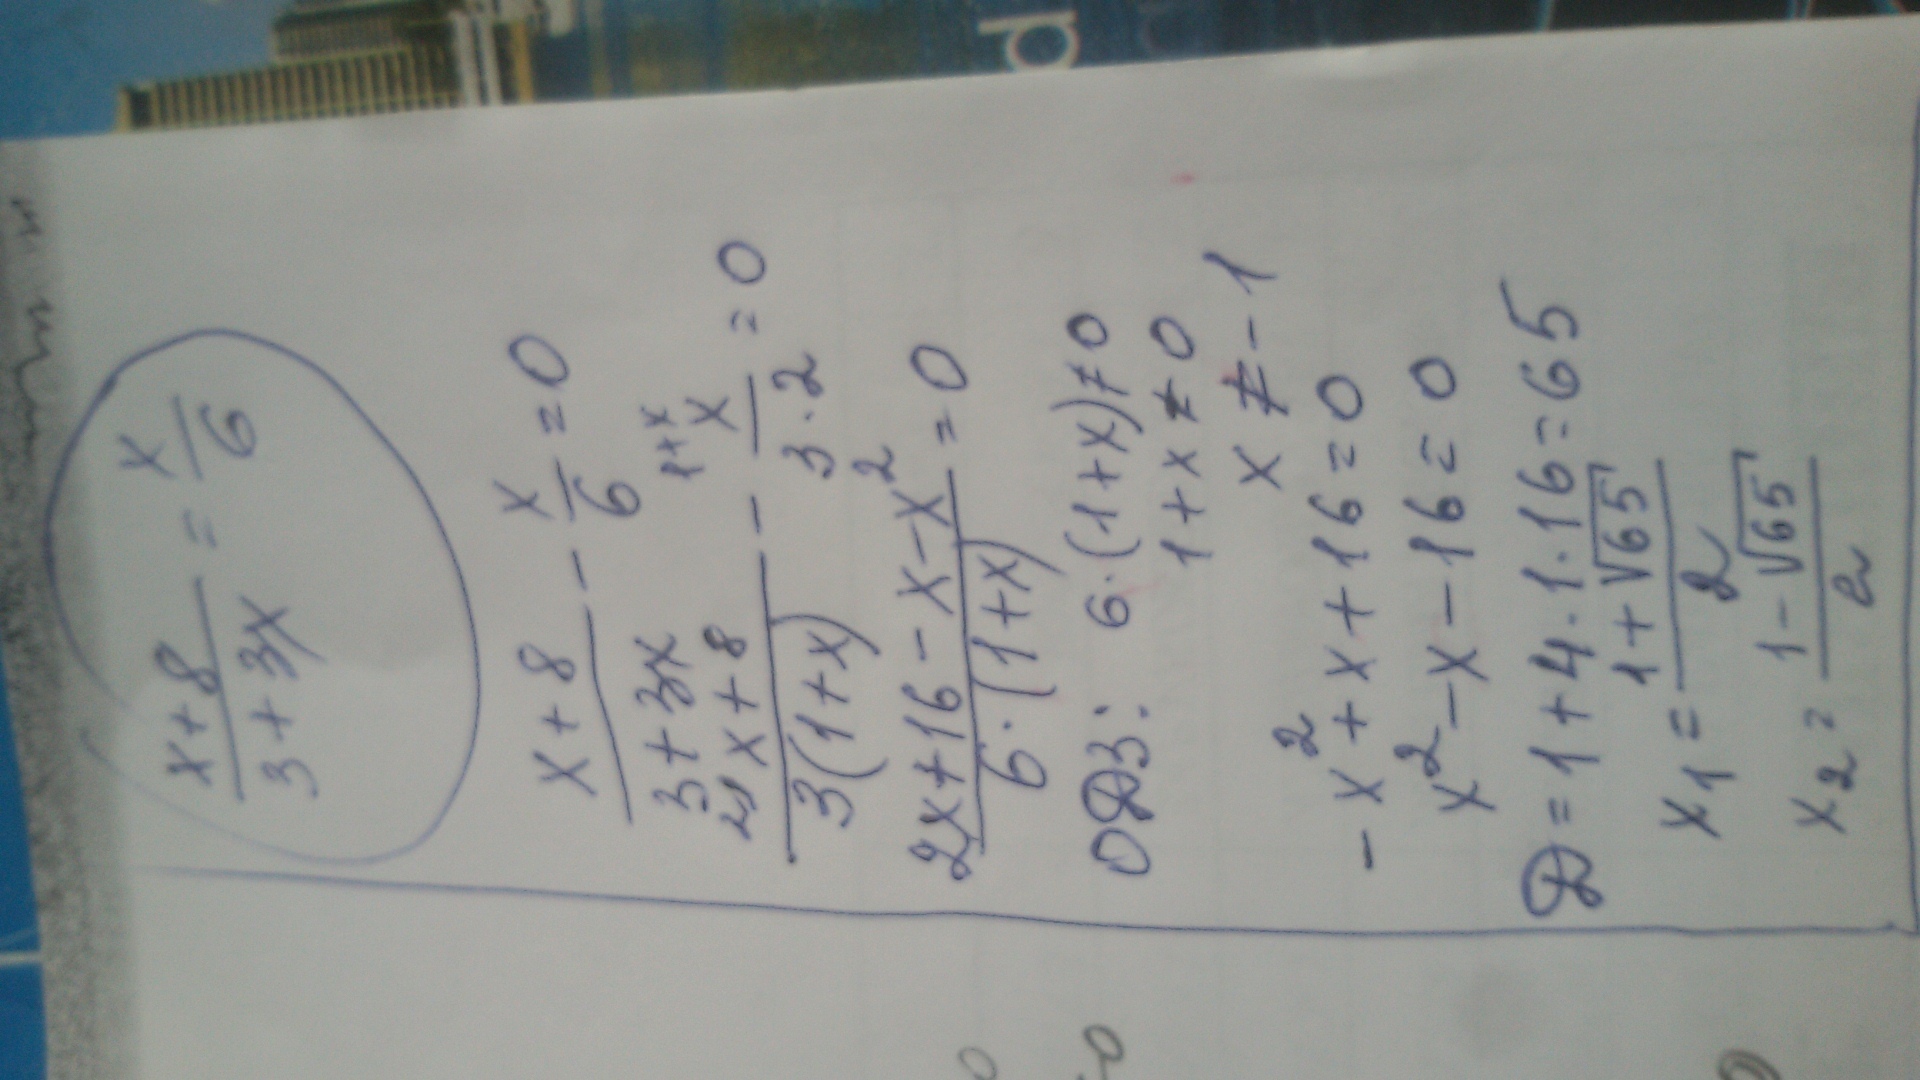 (x+8)/(3+3x) = x/6
(x+8)/(3+3x) - x/6 = 0
(2\x+8)/(3(1+x)) - (1+x\x)/(3·2) = 0
(2x+16-x-x²)/(6·(1+x)) = 0
ОДЗ: 6·(1+x)≠0
1+x≠0
x≠-1
-x²+x+16=0
x²-x-16=0
D=1+4·1·16=65
x₁=(1+√65)/2
x₂=(1-√65)/2